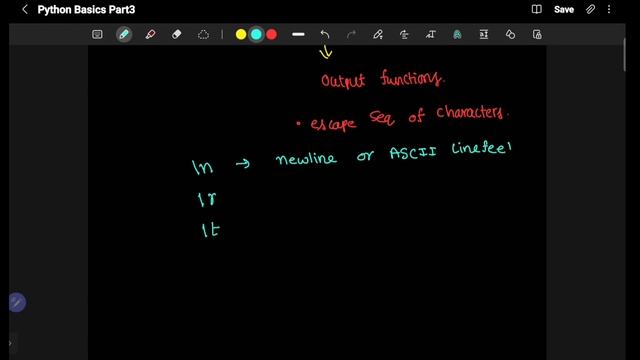 Python Basics Part3
Save
Output functions.
• escape seq of characters.
\n → newline or ASCII Linefeed
\r
\t